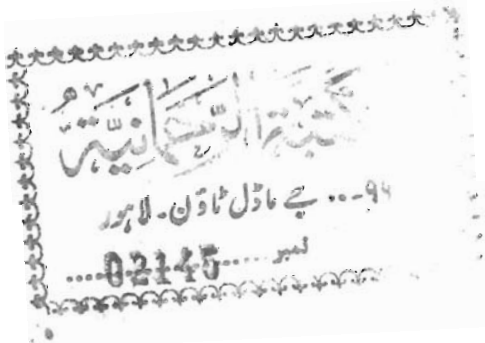 مکتبۃ الرحمانیۃ
۹۹...جے ماڈل ٹاؤن۔ لاہور
نمبر ......02145....